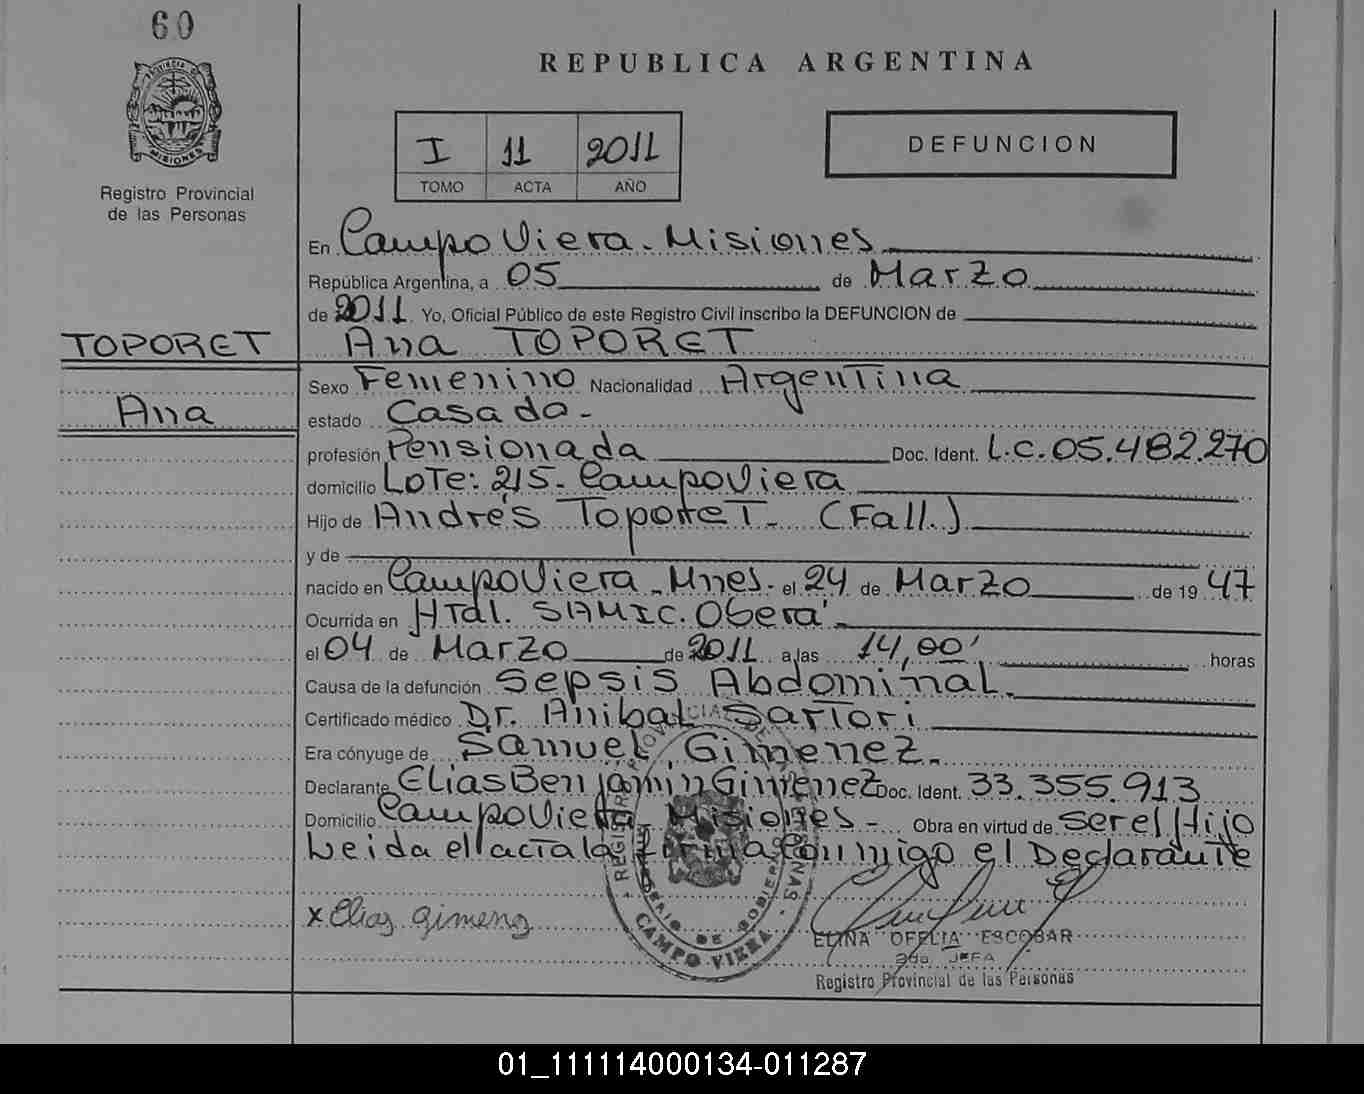 60
REPUBLICA ARGENTINA
PROVINCIA DE
MISIONES
Registro Provincial
de las Personas
I 11 2011
TOMO ACTA AÑO
DEFUNCION
En Campo Viera - Misiones
República Argentina, a 05 de Marzo
de 2011 Yo, Oficial Público de este Registro Civil inscribo la DEFUNCION de
TOPORET Ana TOPORET
Sexo Femenino Nacionalidad Argentina
Ana estado Casada -
profesión Pensionada Doc. Ident. L.C. 05.482.270
domicilio Lote: 215 - Campo Viera
Hijo de Andrés Toporet - (Fall.)
y de
nacido en Campo Viera - Mnes. el 24 de Marzo de 19 47
Ocurrida en Htal. SAMIC. Oberá -
el 04 de Marzo de 2011 a las 14,00' horas
Causa de la defunción Sepsis Abdominal.
Certificado médico Dr. Anibal Sartori
Era cónyuge de Samuel Gimenez.
Declarante Elias Benjamin Gimenez Doc. Ident. 33.355.913
Domicilio Campo Viera - Misiones - Obra en virtud de ser el Hijo
Leida el acta la firma Conmigo el Declarante
x Elias Gimenez
REGISTRO PROVINCIAL DE
PERSONAS
CAMPO VIERA
ELINA OFELIA ESCOBAR
2da. JEFA
Registro Provincial de las Personas
01_111114000134-011287